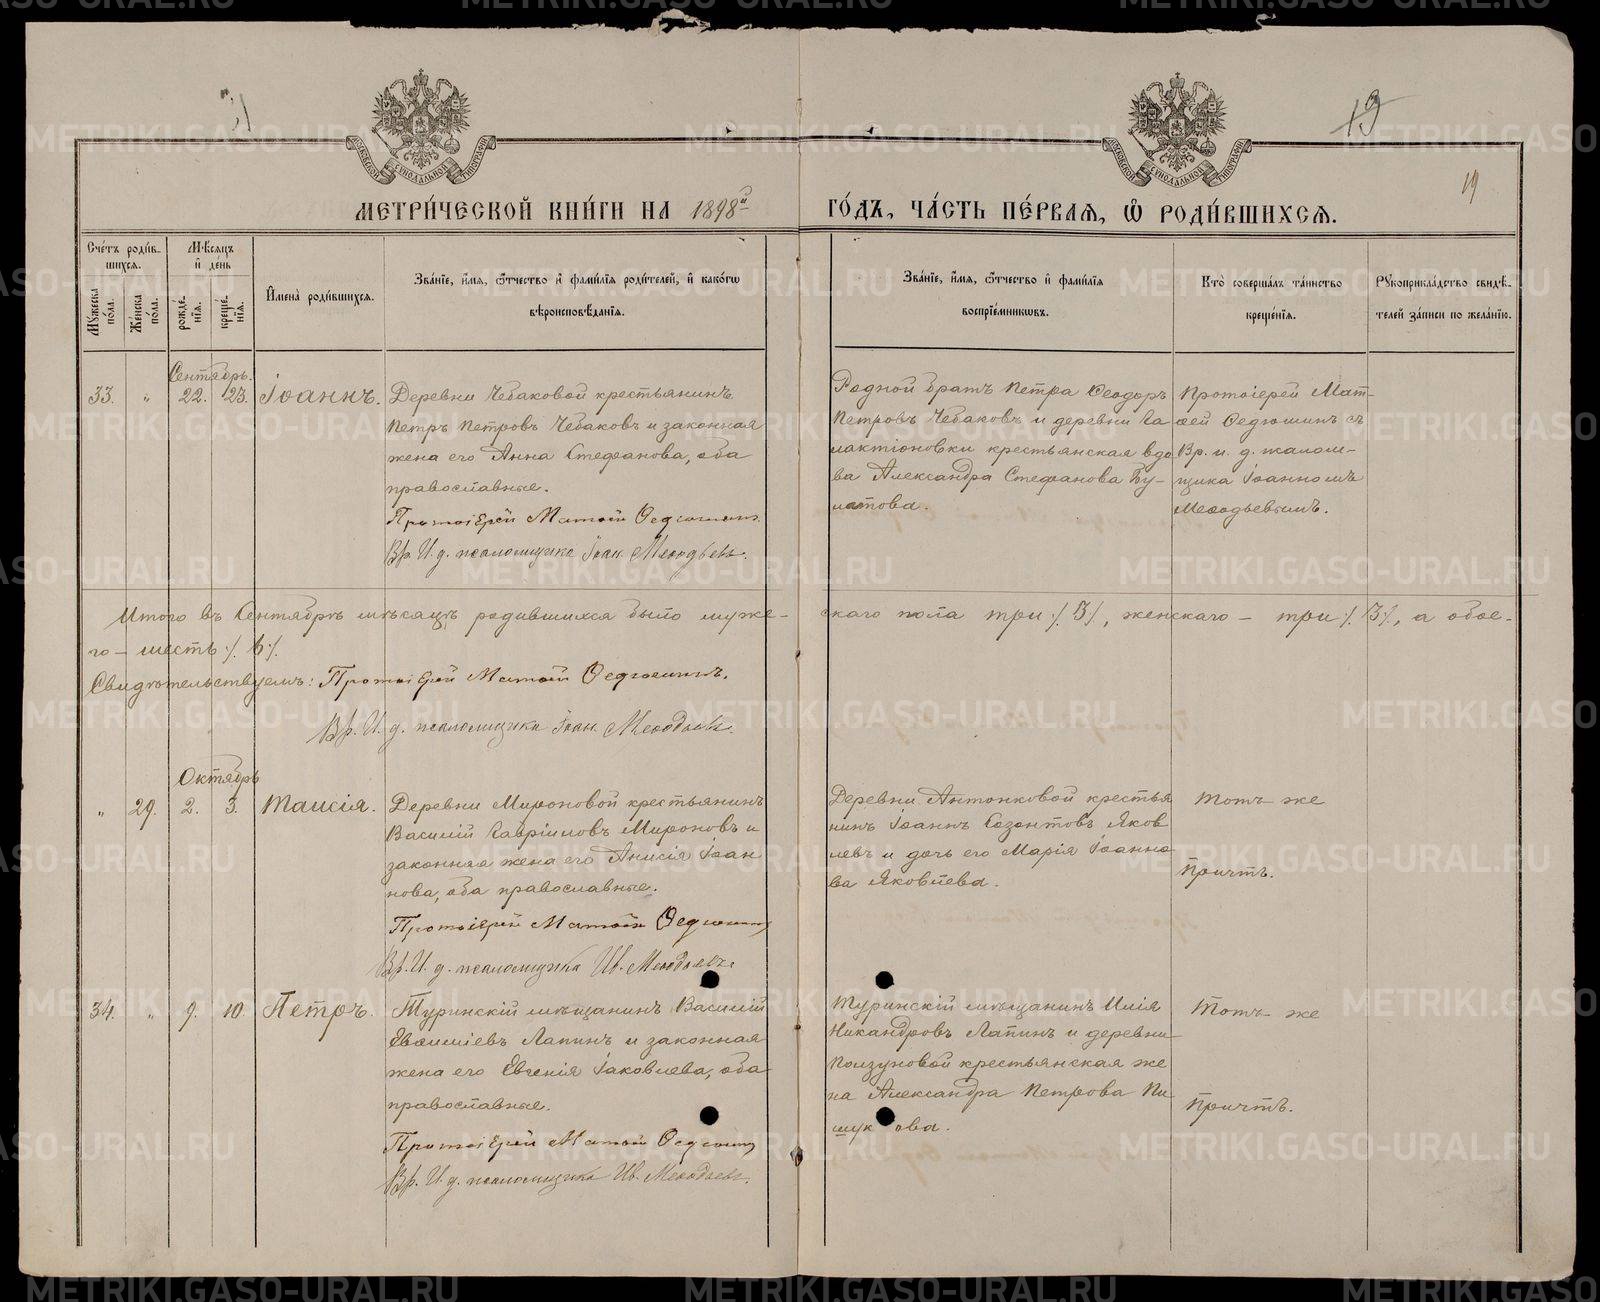 19
19
МЕТРИ́ЧЕСКОЙ КНИ́ГИ НА 1898й ГО́ДЪ, ЧА́СТЬ ПЕ́РВАѦ, Ѽ РОДИ́ВШИХСѦ.
Сче́тъ роди́в-
шихсѧ.
Мѣ́сѧцъ
и҆ де́нь
Мꙋ́жеска по́ла.
Же́нска по́ла.
рожде́-
нїѧ.
креще́-
нїѧ.
И҆мена̀ роди́вшихсѧ.
Зва́нїе, и҆́мѧ, ѻ҆́тчество и҆ фами́лїѧ роди́телей, и҆ како́гѡ
вѣроисповѣ́данїѧ.
Зва́нїе, и҆́мѧ, ѻ҆́тчество и҆ фами́лїѧ
воспрїе́мникѡвъ.
Кто̀ соверша́лъ та́инство
креще́нїѧ.
Рꙋкоприкла́дство свидѣ́-
телей за́писи по жела́нїю.
Сентябрь.
33. „ 22. 23. Іоаннъ.
Деревни Чебаковой крестьянинъ
Петръ Петровъ Чебаковъ и законная
жена его Анна Стефанова, оба
православные.
Протоіерей Матѳей Ѳедюшинъ.
Вр. И. д. псаломщика Іоан. Меѳодьевъ.
Родной братъ Петра Ѳеодоръ
Петровъ Чебаковъ и деревни Га
лактіоновки крестьянская вдо
ва Александра Стефанова Бу-
латова.
Протоіерей Мат-
ѳей Ѳедюшинъ съ
Вр. и. д. псалом-
щика Іоанномъ
Меѳодьевымъ.
Итого въ Сентябрѣ мѣсяцѣ родившихся было муже- скаго пола три ⁒ 3 ⁒, женскаго — три ⁒ 3 ⁒, а обое-
го — шесть ⁒ 6 ⁒
Свидѣтельствуемъ: Протоіерей Матѳей Ѳедюшинъ.
Вр. И. д. псаломщика Іоан. Меѳодьевъ.
Октябрь
„ 29. 2. 3. Таисія.
Деревни Мироновой крестьянинъ
Василій Гавріиловъ Мироновъ и
законная жена его Анисія Іоан
нова, оба православные.
Протоіерей Матѳей Ѳедюшинъ
Вр. И. д. псаломщика Ив. Меѳодьевъ.
Деревни Антонковой крестья
нинъ Іоаннъ Созонтовъ Яков
левъ и дочь его Марія Іоанно
ва Яковлева.
Тотъ-же
Причтъ.
34. „ 9. 10. Петръ.
Туринскій мѣщанинъ Василій
Евѳиміевъ Лапинъ и законная
жена его Евгенія Іаковлева, оба
православные.
Протоіерей Матѳей Ѳедюшинъ
Вр. И. д. псаломщика Ив. Меѳодьевъ.
Туринскій мѣщанинъ Илія
Никандровъ Лапинъ и деревни
Ползуновой крестьянская же
на Александра Петрова Пи
щук ова.
Тотъ-же
Причтъ.
METRIKI.GASO-URAL.RU